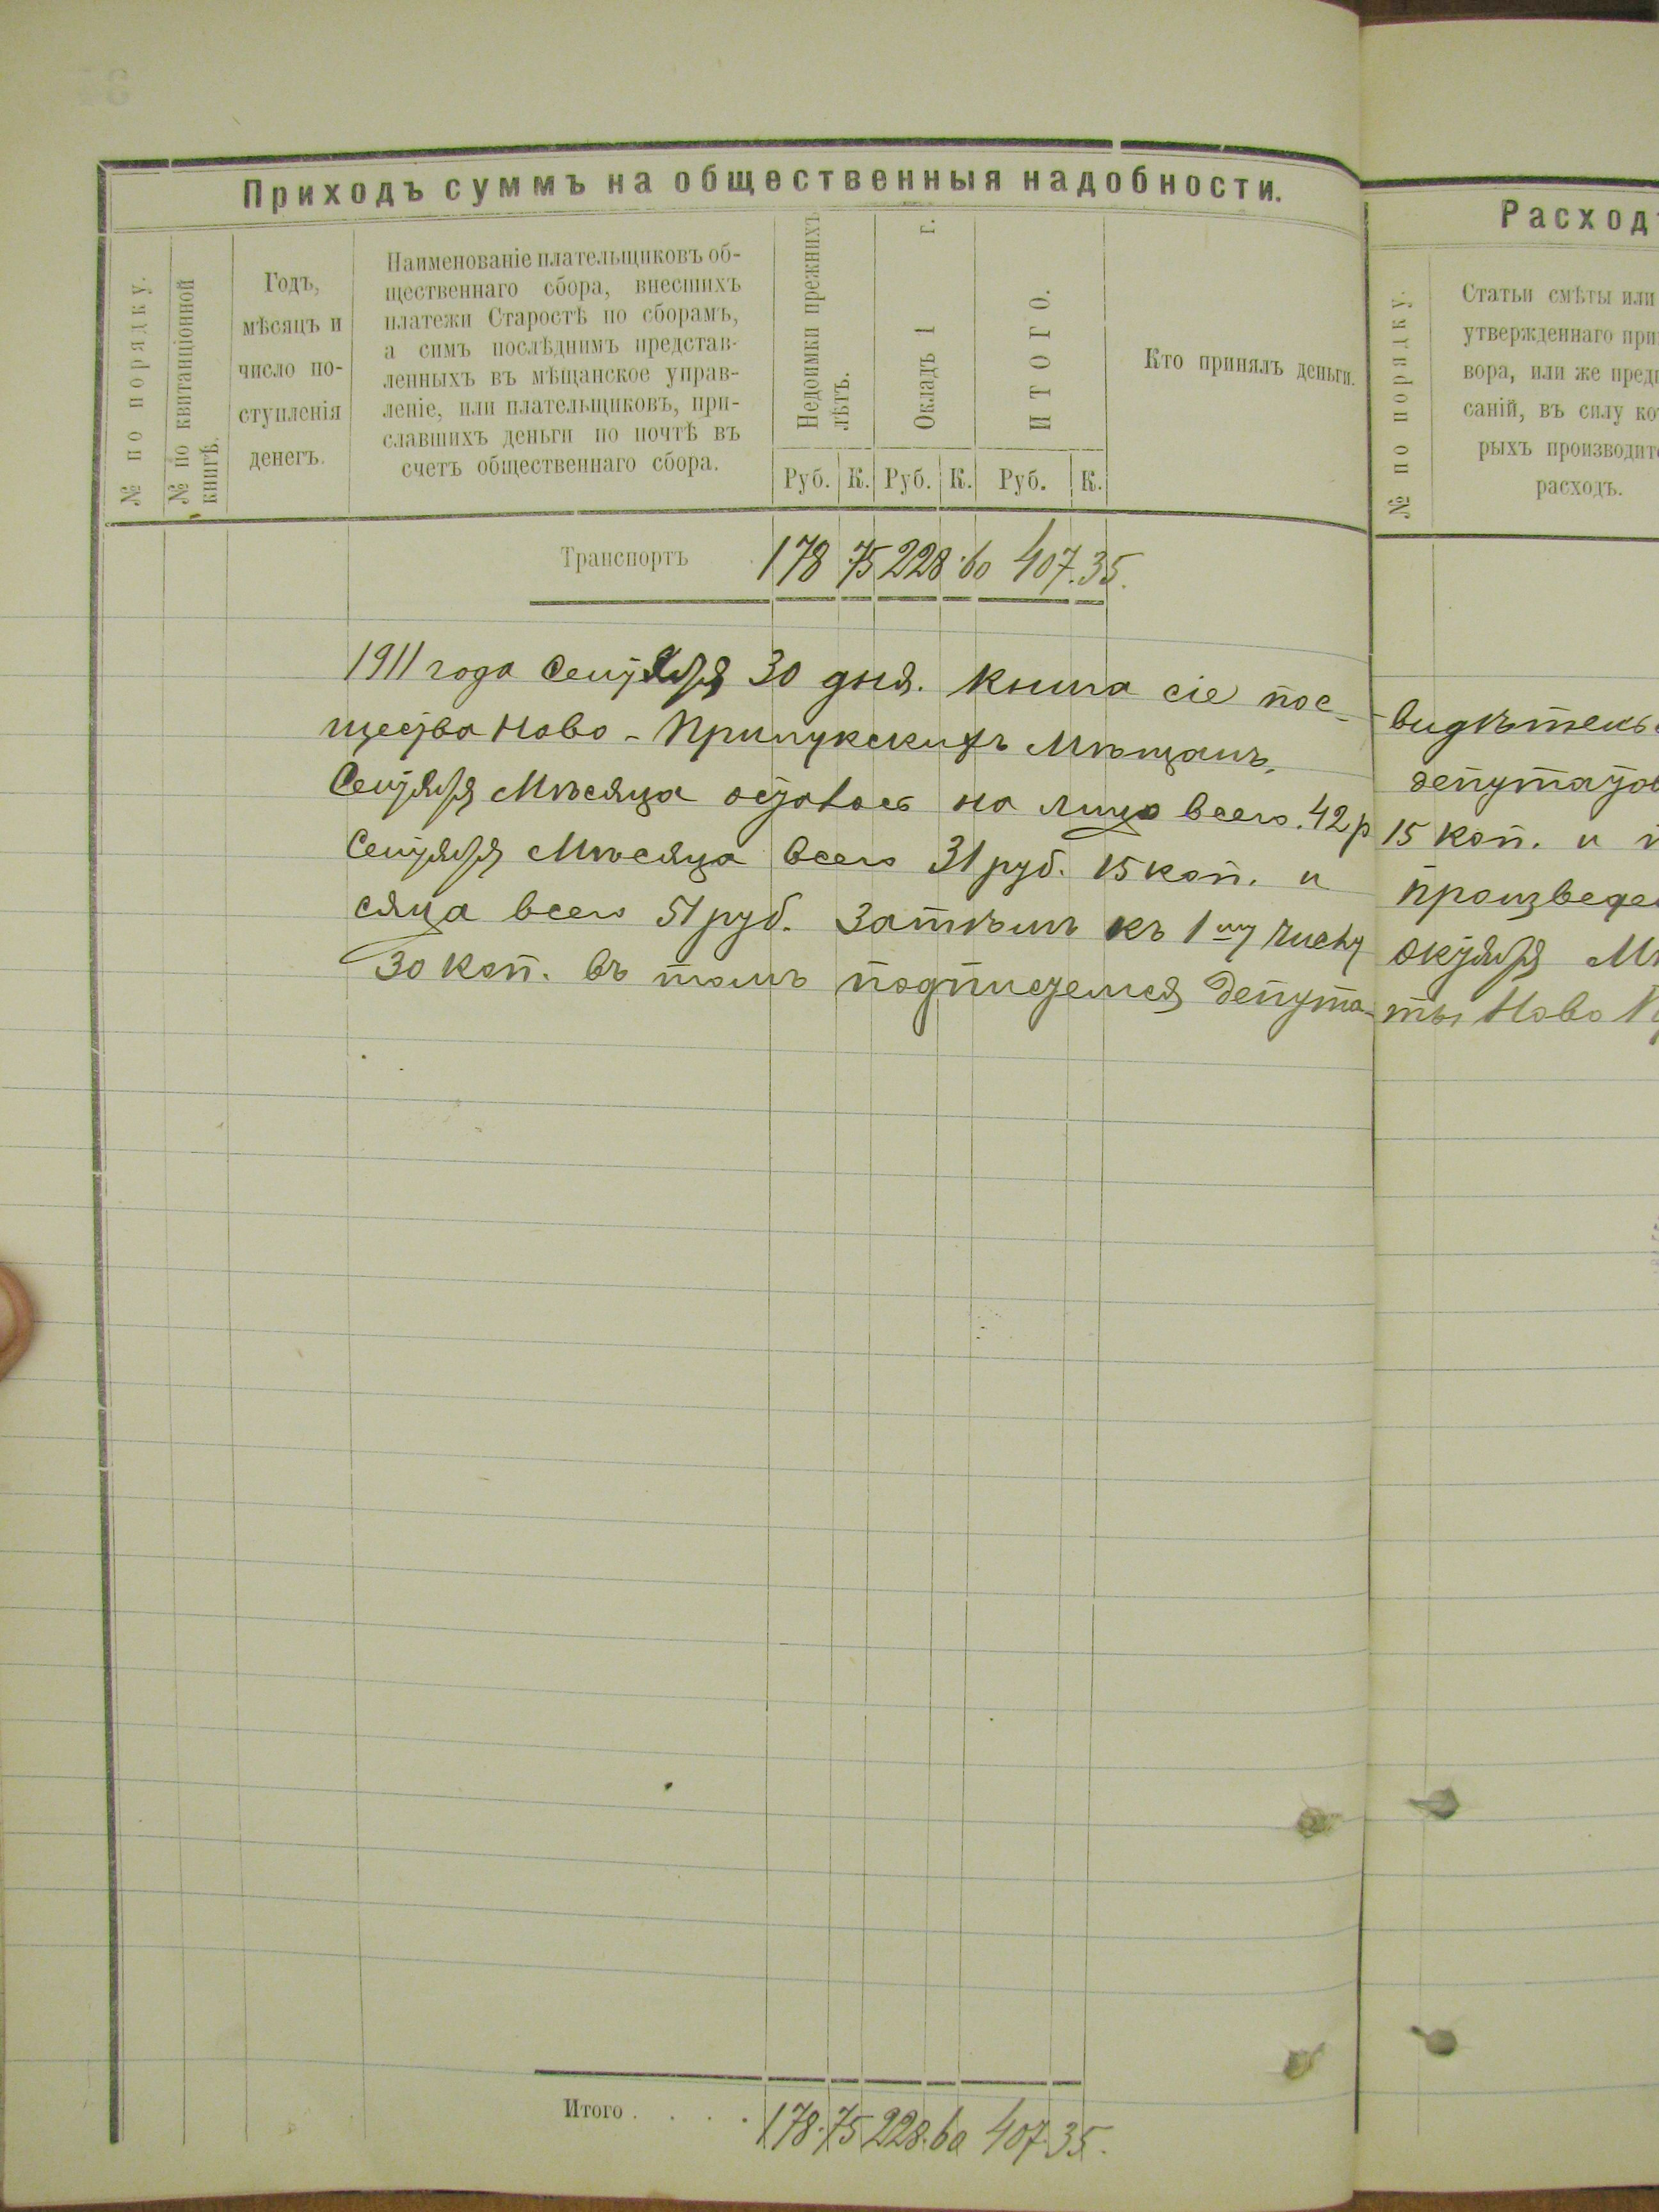 Приходъ суммъ на общественныя надобности.
№ по порядку.
№ по квитанціонной
книгѣ.
Годъ,
мѣсяцъ и
число по-
ступленія
денегъ.
Наименованіе плательщиковъ об-
щественнаго сбора, внесшихъ
платежи Старостѣ по сборамъ,
а симъ послѣднимъ представ-
ленныхъ въ мѣщанское управ-
леніе, или плательщиковъ, при-
славшихъ деньги по почтѣ въ
счетъ общественнаго сбора.
Недоимки прежнихъ
лѣтъ.
Окладъ 1 г.
ИТОГО.
Руб. К. Руб. К. Руб. К.
Кто принялъ деньги.
Транспортъ 178 75 228.60 407.35.
1911 года Сентября 30 дня. Книга сіе пос-
щества Ново-Прилукскихъ Мѣщанъ.
Сентября Мѣсяца осталось на лицо всего. 42 р
Сентября Мѣсяца всего 31 руб. 15 коп. и
сяца всего 51 руб. Затѣмъ къ 1му числу
30 коп. въ томъ подписуемся Депута-
Итого . . . . 178.75 228.60 407.35.
Расходъ
№ по порядку.
Статьи смѣты или
утвержденнаго при
вора, или же пред
саній, въ силу ко
рыхъ производит
расходъ.
видѣтель
депутатов
15 коп. и
произведе
октября М
ты Ново